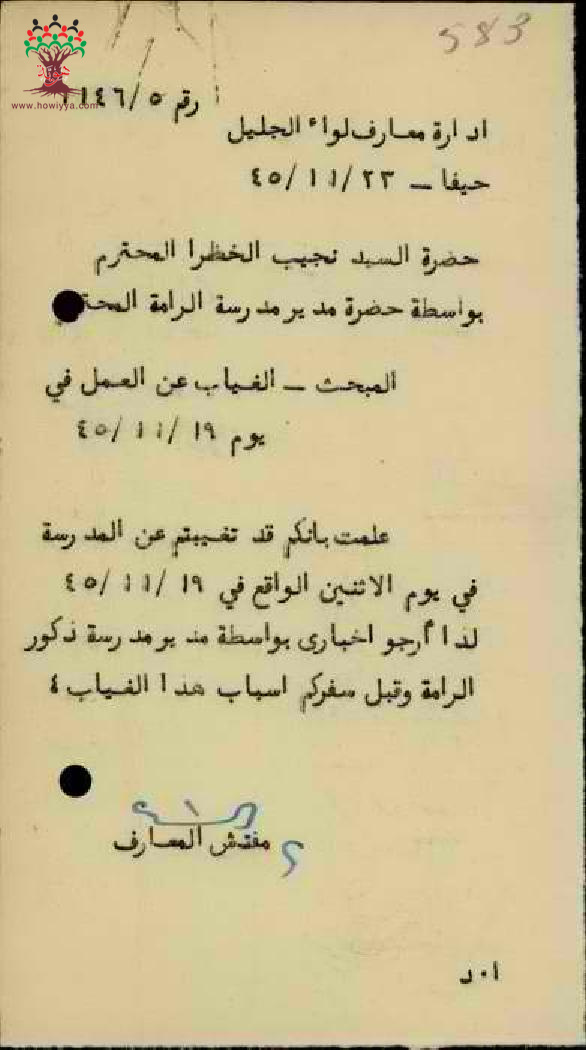 583
www.howiyya.com
رقم ١١٤٦/٥
ادارة معارف لواء الجليل
حيفا – ٤٥/١١/٢٣
حضرة السيد نجيب الخظرا المحترم
بواسطة حضرة مدير مدرسة الرامة
المبحث – الغياب عن العمل في
يوم ٤٥/١١/١٩
علمت بانكم قد تغيبتم عن المدرسة
في يوم الاثنين الواقع في ٤٥/١١/١٩
لذا أرجو اخباري بواسطة مدير مدرسة ذكور
الرامة وقبل سفركم اسباب هذا الغياب ٤
مفتش المعارف
ا٠د